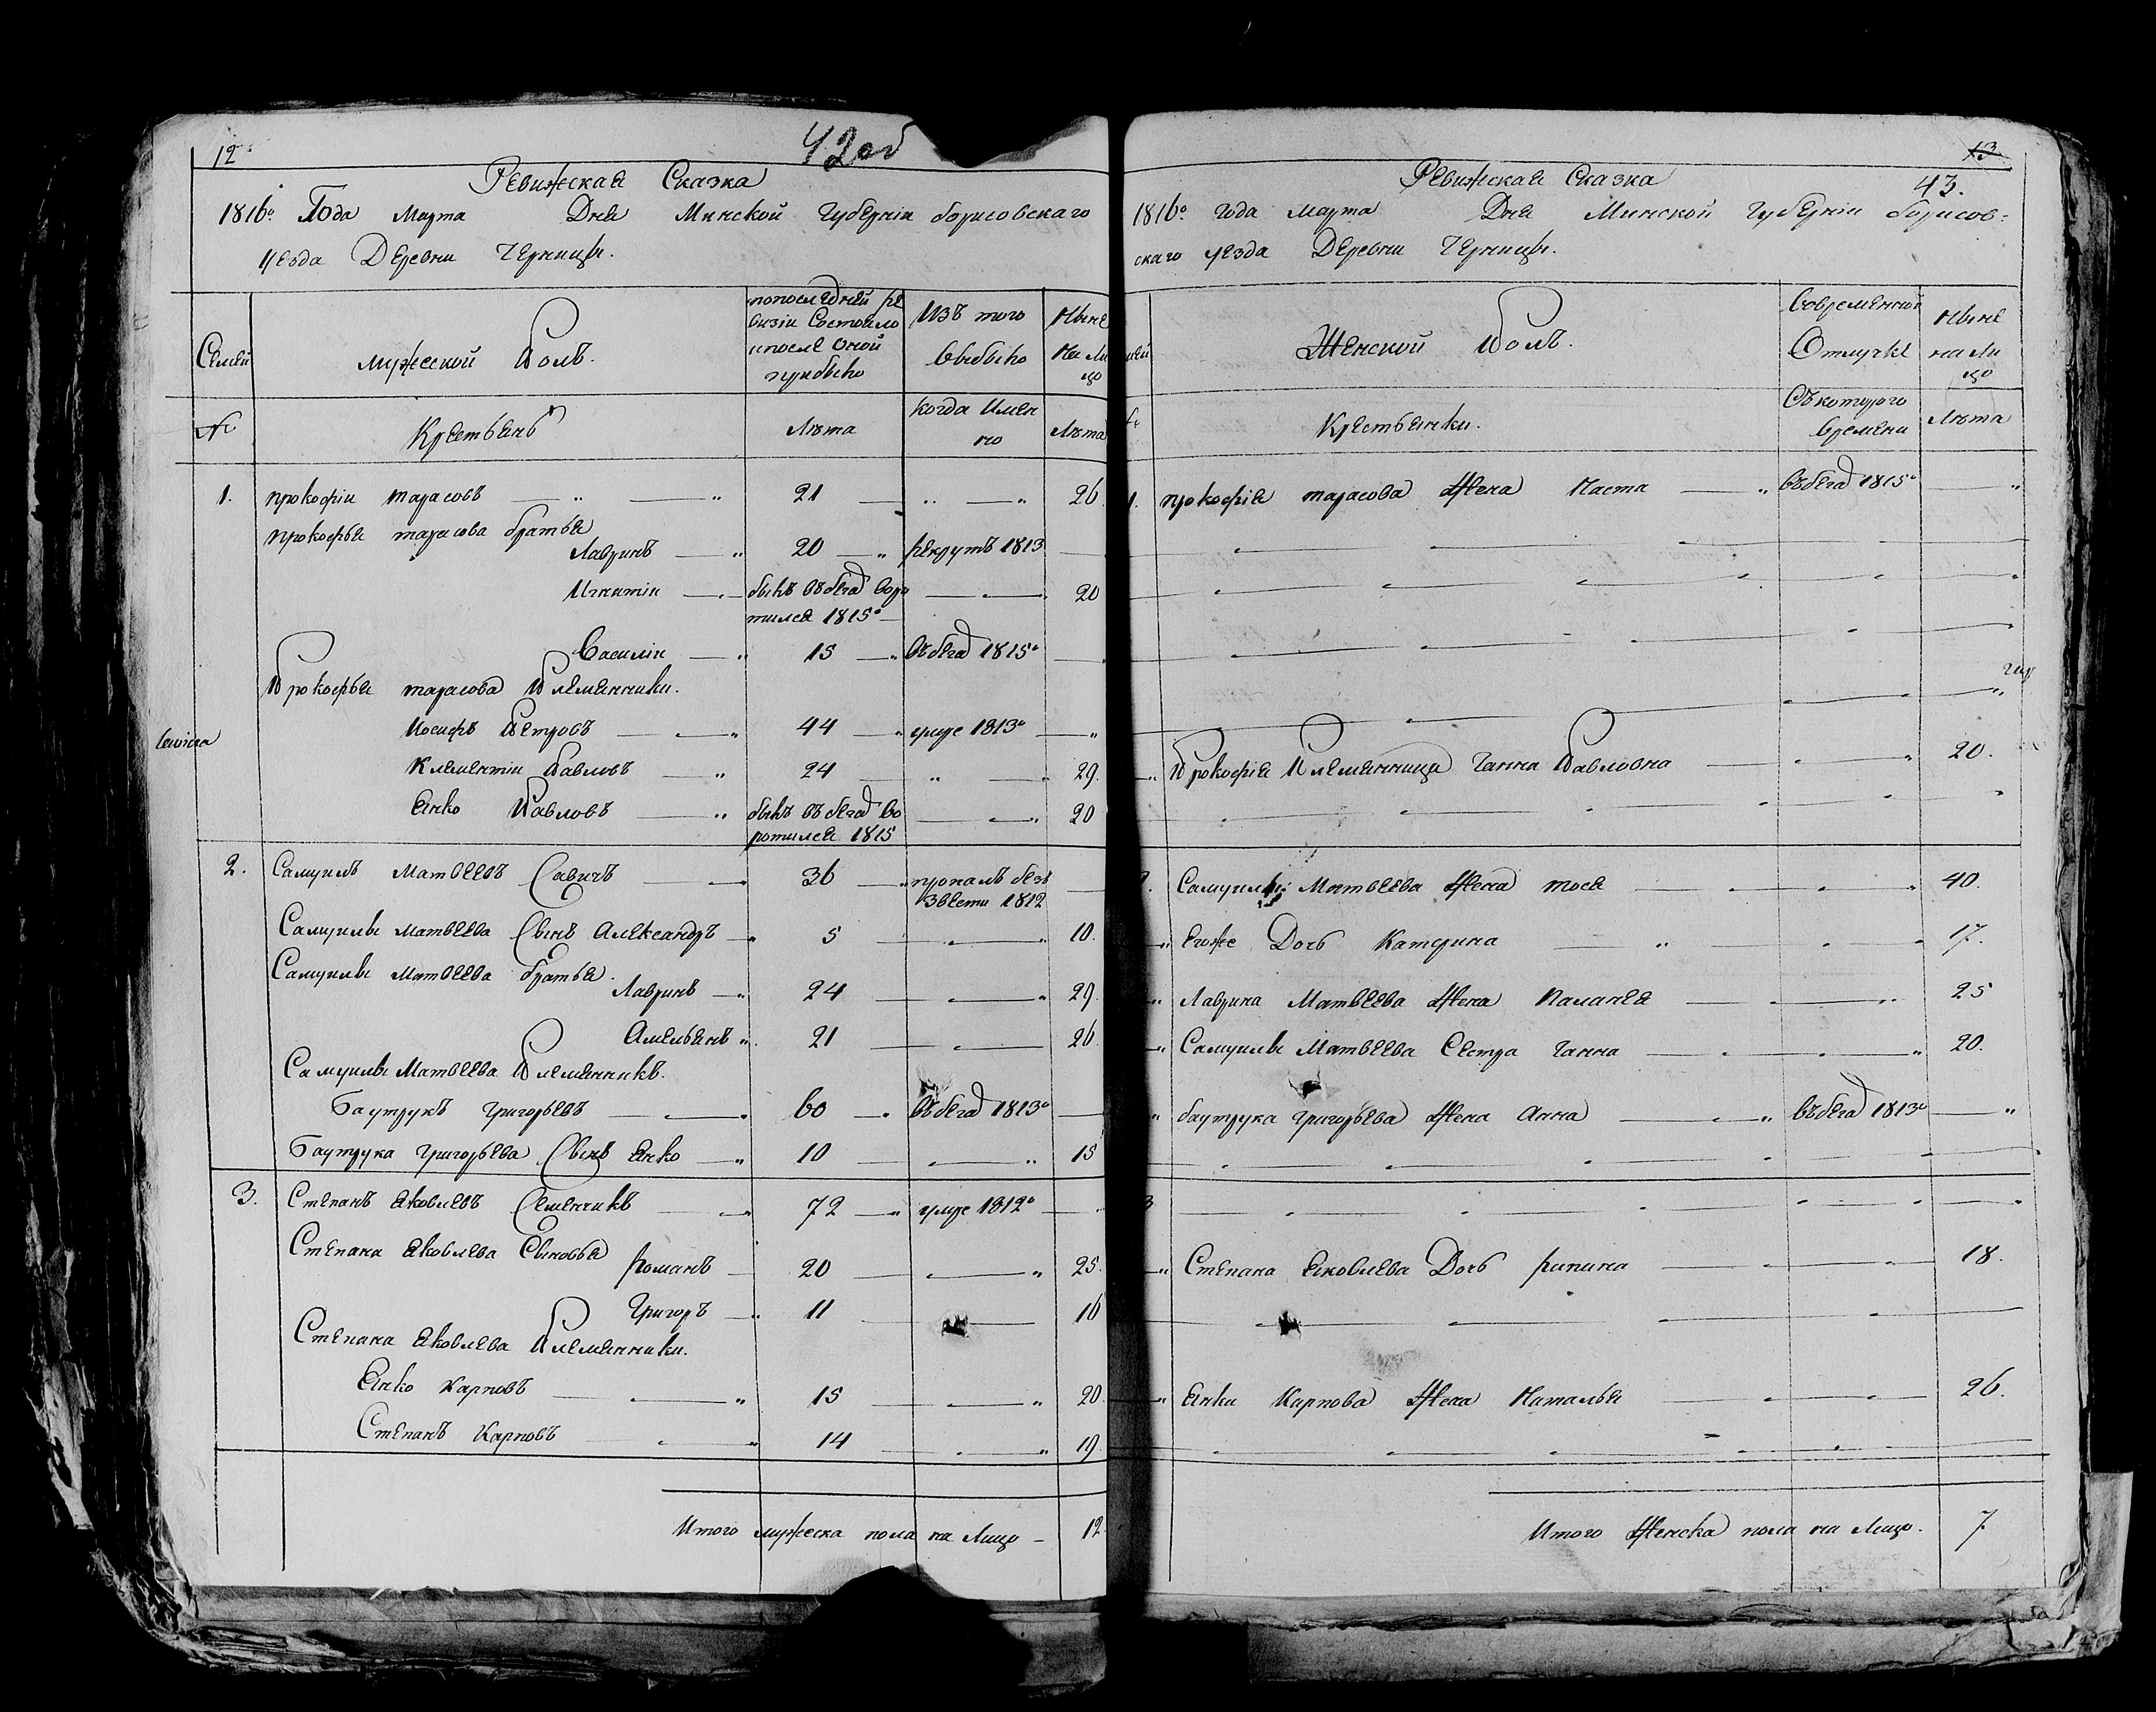 12
42 об
Ревижская Сказка
1816го Года Марта Дня Минской Губерніи борисовскаго
уезда Деревни Черницы.
Семей
мужеской Полъ.
попоследней ре
визіи Состояло
и после оной
прибыло
Изъ того
выбыло
Ныне
на Ли
цо
№
Крестьянъ
Лѣта
когда Имен
но
Лѣта
1. прокофіи тарасовъ 21 26.
прокофья тарасова братья
Лавринъ 20 рекрутъ 1813
Игнатіи былъ въбегах воро 20
тился 1815го
Василіи 15 въбегах 1815го
Прокофья тарасова Племянники.
Иосифъ Петровъ 44 умре 1813го
Клементіи Павловъ 24 29.
Янко Павловъ былъ въ бегах во 20
ротился 1815
2. Самуилъ Матвеевъ Савичъ 36 пропалъ безъ
звести 1812
Самуилы матвеева Сынъ Александръ 5 10.
Самуилы матвеева братья.
Лавринъ 24 29.
Амельянъ 21 26.
Самуилы Матвеева Племянникъ.
Баутрукъ григорьевъ 60 въбегах 1813го
Баутрука григорьева Сынъ Янко 10 15
3. Степанъ Яковлевъ Семенчикъ 72 умре 1812го
Степана Яковлева Сыновья
романъ 20 25.
Григоръ 11 16
Степана Яковлева Племянники.
Янко карповъ 15 20.
Степанъ Карповъ 14 19.
Итого мужеска пола на Лицо 12.
13
43.
Ревижская Сказка
1816го года марта Дня Минской Губерніи борисов-
скаго уезда Деревни Черницы.
Женской Полъ.
Вовременной
Отлучке
Ныне
на Ли
цо
Крестьянки.
Съкоторого
времени
Лѣта
1. прокофія тарасова Жена Наста въбегах 1815го
Прокофія Племянница Ганна Павловна 20.
Самуилы Матвеева Жена тося 40.
Егоже Дочь Катерина 17.
Лаврина Матвеева Жена Паланея 25
Самуилы Матвеева Сестра Ганна 20.
баутрука григорьева Жена Анна въбегах 1813го
3
Степана Яковлева Дочь рипина 18.
Янки Карпова Жена Наталья 26.
Итого Женска пола на Лицо. 7